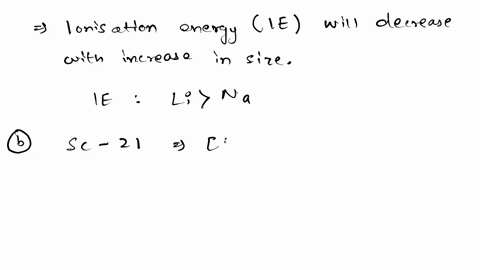 ⇒ Ionisation energy (IE) will decrease
with increase in size.
IE : Li > Na
(b) Sc - 21 ⇒ [: